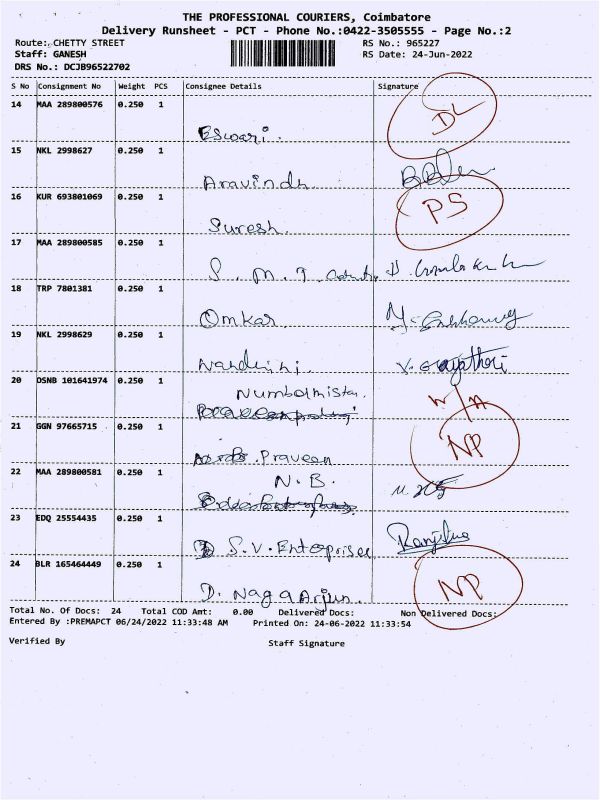 THE PROFESSIONAL COURIERS, Coimbatore
Delivery Runsheet - PCT - Phone No.:0422-3505555 - Page No.:2
Route: CHETTY STREET RS No.: 965227
Staff: GANESH RS Date: 24-Jun-2022
DRS No.: DCJB96522702
S No Consignment No Weight PCS Consignee Details Signature
14 MAA 289800576 0.250 1
Eswari. DL
15 NKL 2998627 0.250 1
Aravindh
16 KUR 693801069 0.250 1 PS
Suresh.
17 MAA 289800585 0.250 1
S. M. T.
18 TRP 7801381 0.250 1
Omkar
19 NKL 2998629 0.250 1
Nandini. V. Gayathri
20 DSNB 101641974 0.250 1
N/A
21 GGN 97665715 0.250 1 NP
Praveen
22 MAA 289800581 0.250 1 N. B.
23 EDQ 25554435 0.250 1
S. V. Enteprises
24 BLR 165464449 0.250 1 NP
D. Naga Arjun.
Total No. Of Docs: 24 Total COD Amt: 0.00 Delivered Docs: Non Delivered Docs:
Entered By :PREMAPCT 06/24/2022 11:33:48 AM Printed On: 24-06-2022 11:33:54
Verified By Staff Signature